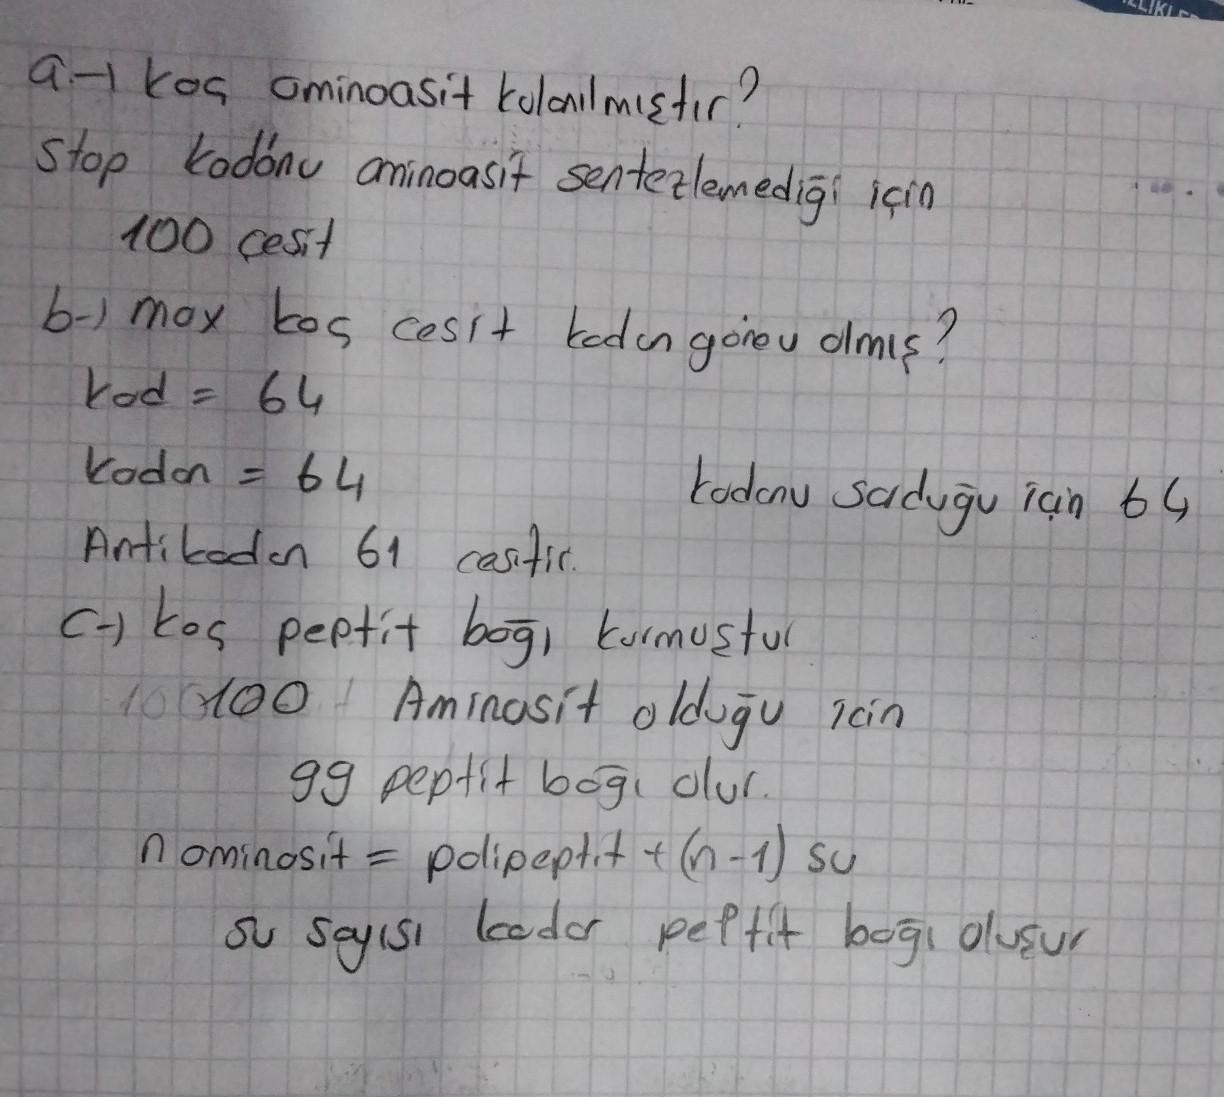 a-) kaç aminoasit kulanılmıştır?
Stop kodonu aminoasit sentezlemediği için
100 çeşit
b-) max kaç cesit kodon görev almış?
kod = 64
kodon = 64
kodonu sorduğu için 64
Antikodon 61 cesittir.
c-) kaç peptit bağı kurmuştur
100 Aminasit olduğu için
99 peptit bağı olur.
n aminosit = polipeptit + (n-1) su
su sayısı kadar peptit bağı oluşur